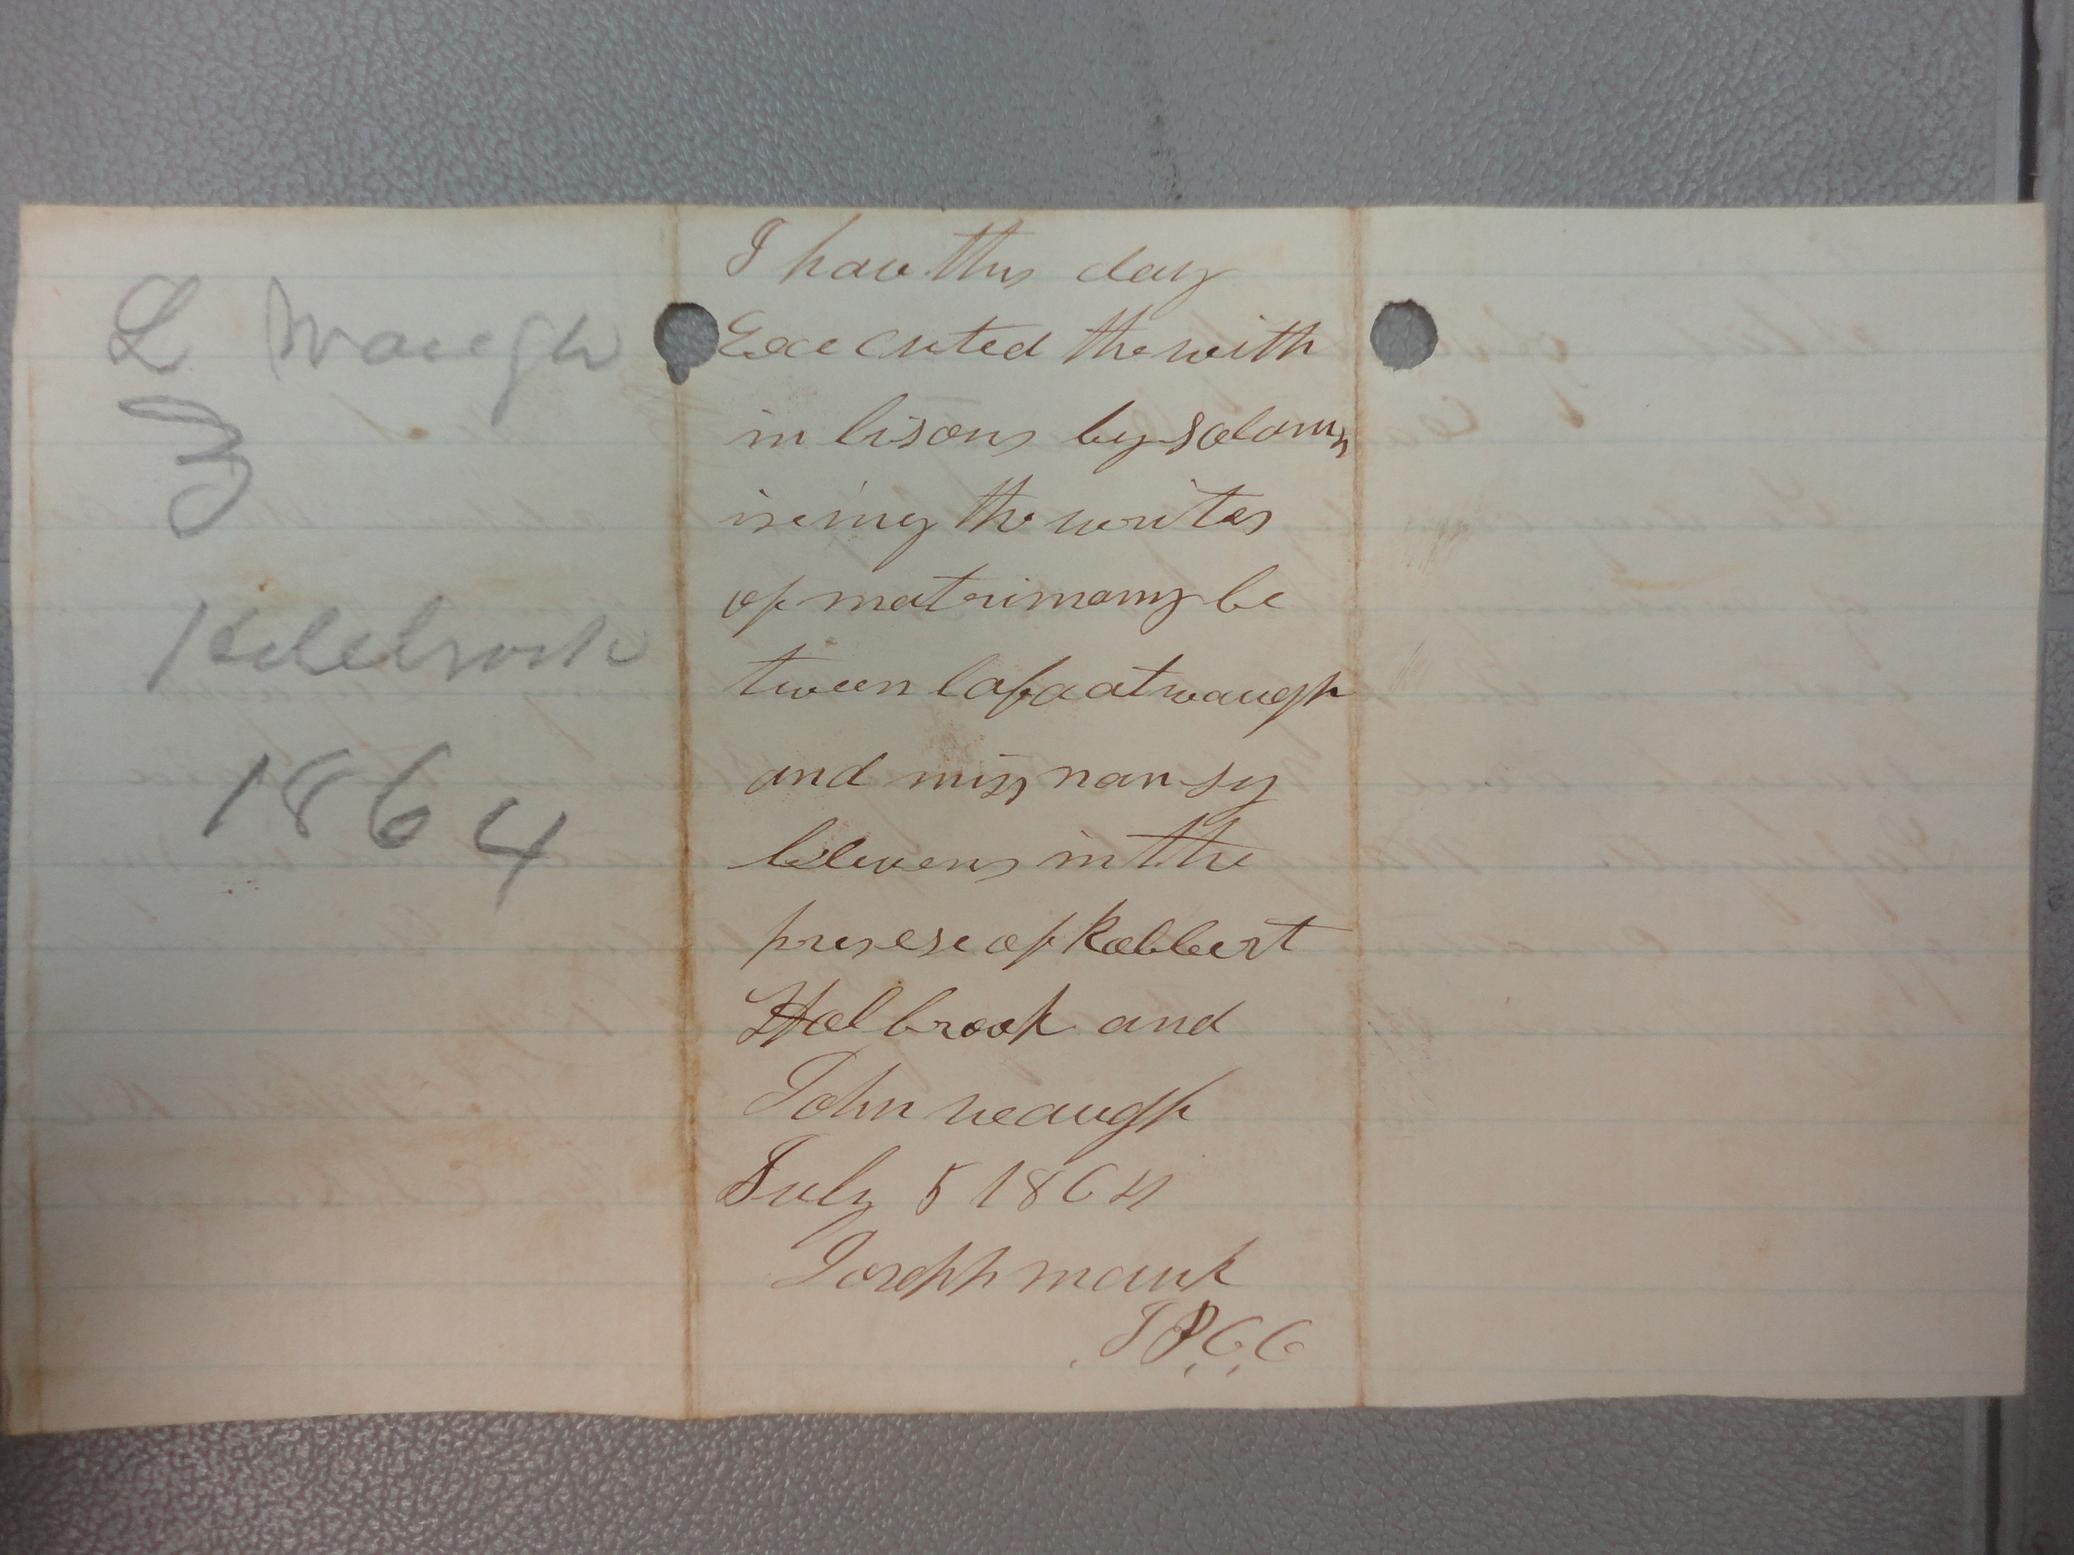 L Waugh
&
Holebrook
1864
I have this day
Executed the with
in lisons by solomn
iseing the writes
of matrimony be
tween lafaat waugh
and miss nansy
blevens in the
presese of Robbert
Holbrook and
John waugh
July 5 1864
Joseph mauk
J P C C